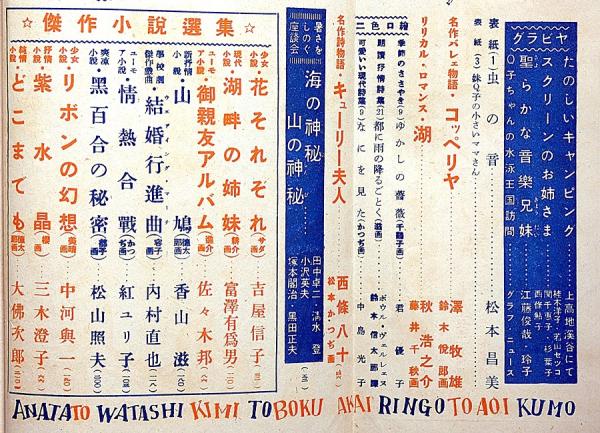 グラビヤ
たのしいキャンピング 上高地渓谷にて
スクリーンのお姉さま 桂木洋子・若山セツコ 関千恵子・杉葉子
聖らかな音樂兄妹 西條鮎子 江藤俊哉・玲子
Q子ちゃんの水泳王国訪問 グラフ・ニュース
表紙(1)虫の音 松本昌美
表紙(3)妹Q子の小さいママさん
名作バレエ物語・コッペリヤ 澤牧雄 鈴木悦郎画
リリカル・ロマンス・湖 秋浩之介 藤井千秋画
二色口繪
季節のささやき(9)ゆかしの薔薇(千鶴子画) 君優子
朗讀抒情詩集(21)都に雨の降るごとく(滋画) ポウル・ヴェルレェヌ 鈴木信太郎譯
可愛いい現代詩集(9)なにを見た(かつぢ画) 中島光子
名作詩物語・キューリー夫人 西條八十 松本かつぢ画
暑さをしのぐ座談会 海の神秘 山の神秘 田中卓二・清水登 小沢英夫 塚本閤治・黒田正夫
☆傑作小說選集☆
少女小說・花それぞれ(サダヲ画) 吉屋信子
現代小說・湖畔の姉妹(耕介画) 富澤有爲男
ユーモア小說・御親友アルバム 佐々木邦
新抒情小說・山鳩 香山滋
學校劇傑作戲曲・結婚行進曲 內村直也
ユーモア小說・情熱合戰(かつぢ画) 紅ユリ子
爽凉小說・黑百合の秘密 松山照夫
少女小說・リボンの幻想 中河與一
抒情小說・紫水晶 三木澄子
純情小說・どこまでも 大佛次郎
ANATA TO WATASHI KIMI TO BOKU AKAI RINGO TO AOI KUMO